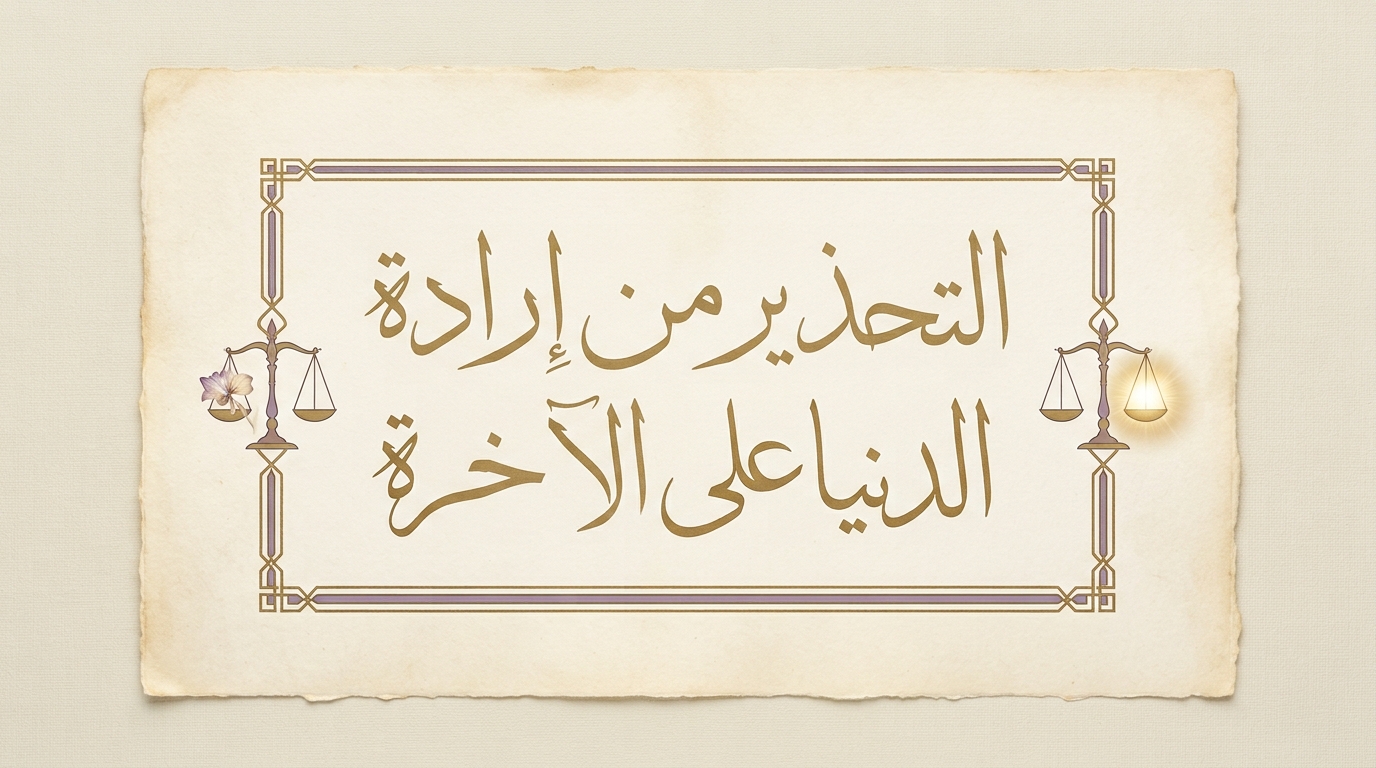 التحذير من إرادة
الدنيا على الآخرة